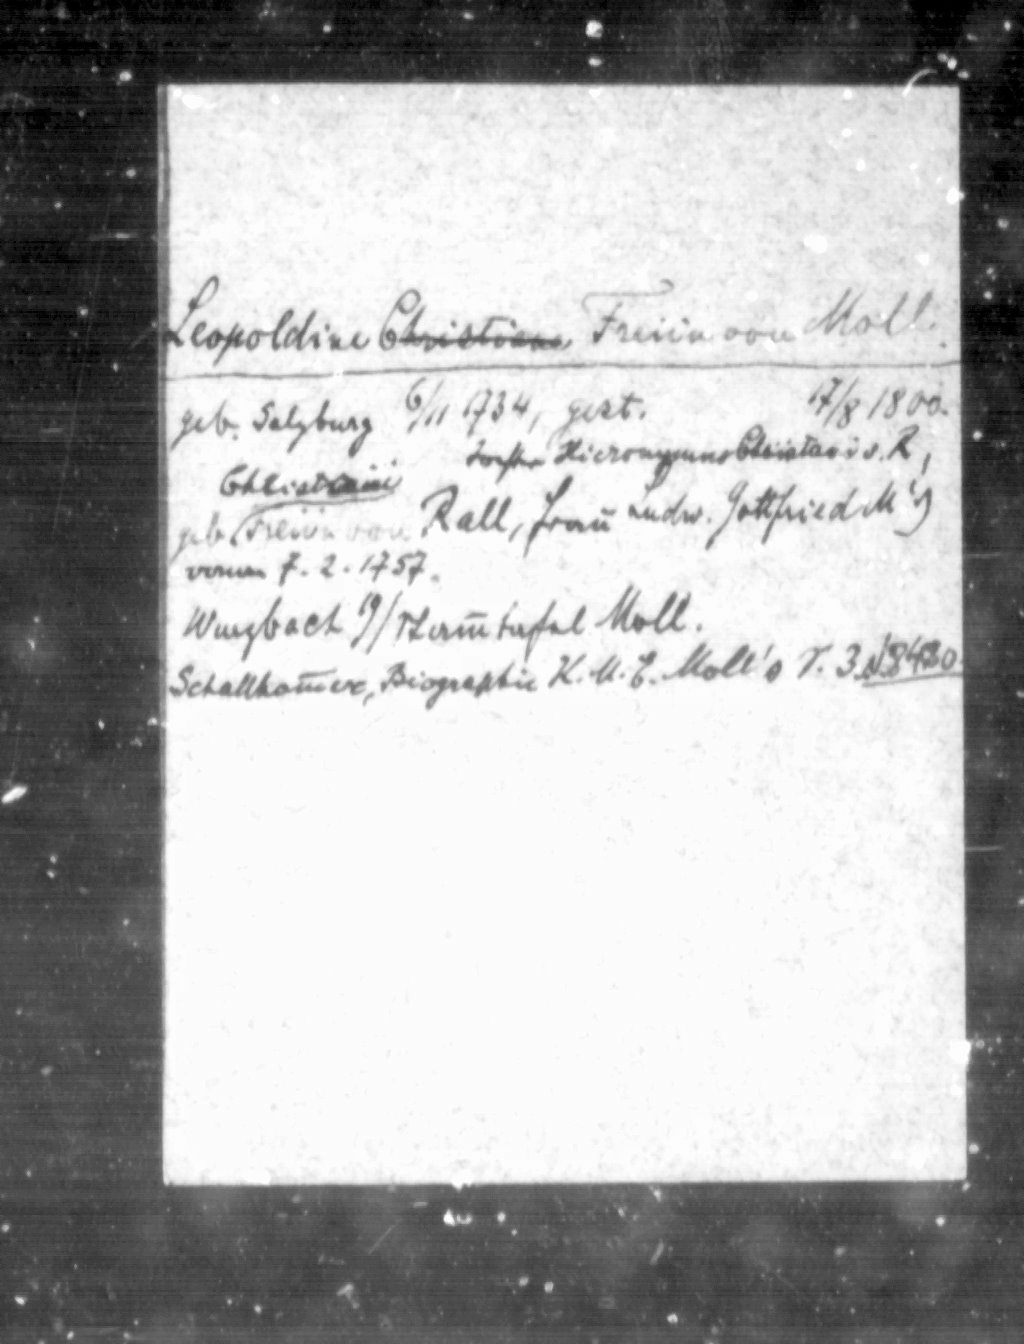 Leopoldine Christiane, Freiin von Moll.
geb. Salzburg 6/11 1734, gest. 17/8 1800.
Hieronymus Christani v. R,
Christiani
geb. Freiin von Rall, Frau Ludw. Gottfried M's
7. 2. 1757.
Wurzbach 19/Stam̄tafel Moll.
Schallham̄er, Biographie K. M. E. Moll's T. 3.